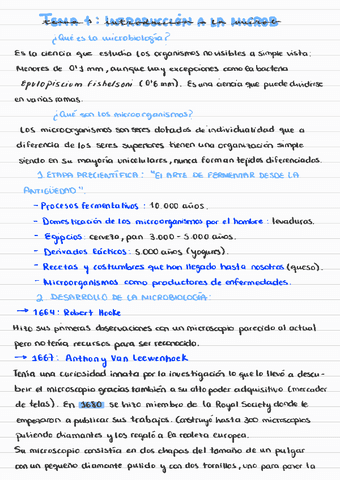 Tema 1: Introducción a la microb
¿Qué es la microbiología?
Es la ciencia que estudia los organismos no visibles a simple vista;
Menores de 0'1 mm, aunque hay excepciones como la bacteria
Epulopiscium fishelsoni (0'6 mm). Es una ciencia que puede dividirse
en varias ramas.
¿Qué son los microorganismos?
Los microorganismos son seres dotados de individualidad que a
diferencia de los seres superiores tienen una organización simple
siendo en su mayoría unicelulares, nunca forman tejidos diferenciados.
1. ETAPA PRECIENTÍFICA: "El ARTE DE FERMENTAR DESDE LA
ANTIGÜEDAD".
- Procesos fermentativos: 10.000 años.
- Domesticación de los microorganismos por el hombre: levaduras.
- Egipcios: cerveza, pan 3.000 - 5.000 años.
- Derivados lácticos: 5.000 años (yogures).
- Recetas y costumbres que han llegado hasta nosotros (queso).
- Microorganismos como productores de enfermedades.
2. DESARROLLO DE LA MICROBIOLOGÍA:
→ 1664: Robert Hooke
Hizo sus primeras observaciones con un microscopio parecido al actual
pero no tenía recursos para ser reconocido.
→ 1667: Anthony Van Leewenhoek
Tenía una curiosidad innata por la investigación lo que lo llevó a descu-
brir el microscopio gracias también a su alto poder adquisitivo (mercader
de telas). En 1680 se hizo miembro de la Royal Society donde le
empezaron a publicar sus trabajos. Construyó hasta 300 microscopios
puliendo diamantes y los regaló a la realeza europea.
Su microscopio consistía en dos chapas del tamaño de un pulgar
con un pequeño diamante pulido y con dos tornillos, uno para parar la